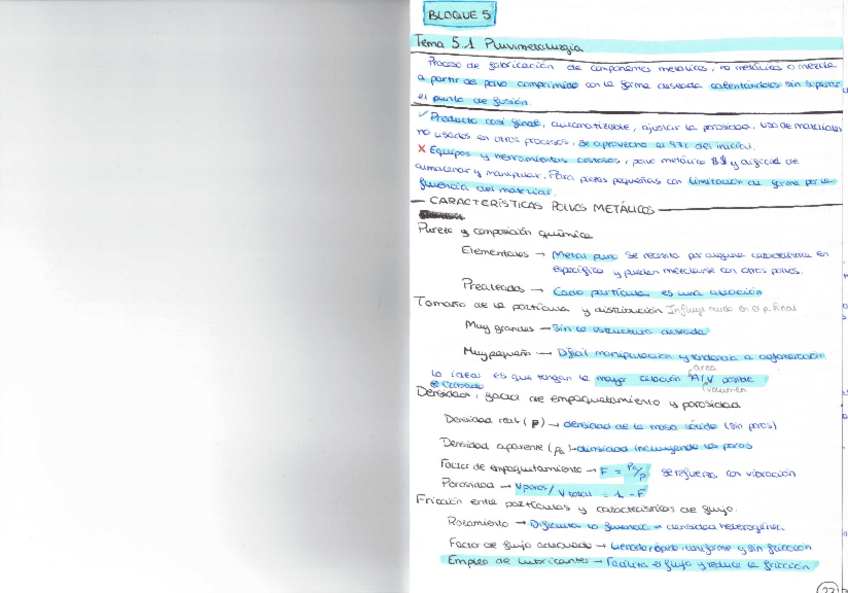 BLOQUE 5
Tema 5.1 Pulvimetalurgia
Proceso de fabricación de componentes metálicos, no metálicos o mezcla
a partir de polvo comprimido con la forma deseada calentándolos sin superar
el punto de fusión.
✓ Producto casi final, automatizable, ajustar la porosidad, uso de materiales
no usados en otros procesos, se aprovecha el 97% del inicial.
✗ Equipos y herramientas costosos, polvo metálico $$ y difícil de
almacenar y manipular. Para piezas pequeñas con limitación de forma por la
fluencia del material.
— CARACTERÍSTICAS POLVOS METÁLICOS —
Pureza y composición química
Elementales → Metal puro se necesita por alguna característica en
específico y pueden mezclarse con otros polvos.
Prealeados → Cada partícula es una aleación
Tamaño de la partícula y distribución Influye mucho en el p. final
Muy grandes → Sin la estructura deseada
Muy pequeño → Difícil manipulación y tendencia a aglomeración
área
Lo ideal es que tengan la mayor relación A/V posible
volumen
Densidad, factor de empaquetamiento y porosidad
Densidad real (ρ) → densidad de la masa sólida (sin poros)
Densidad aparente (ρa) → densidad incluyendo los poros
Factor de empaquetamiento → F = ρa/ρ se refuerza con vibración
Porosidad → Vporos/Vtotal = 1 - F
Fricción entre partículas y características de flujo.
Rozamiento → Dificulta la fluencia → densidad heterogénea
Factor de flujo adecuado → Llenado rápido, uniforme y sin fricción
Empleo de lubricantes → Facilita el flujo y reduce la fricción